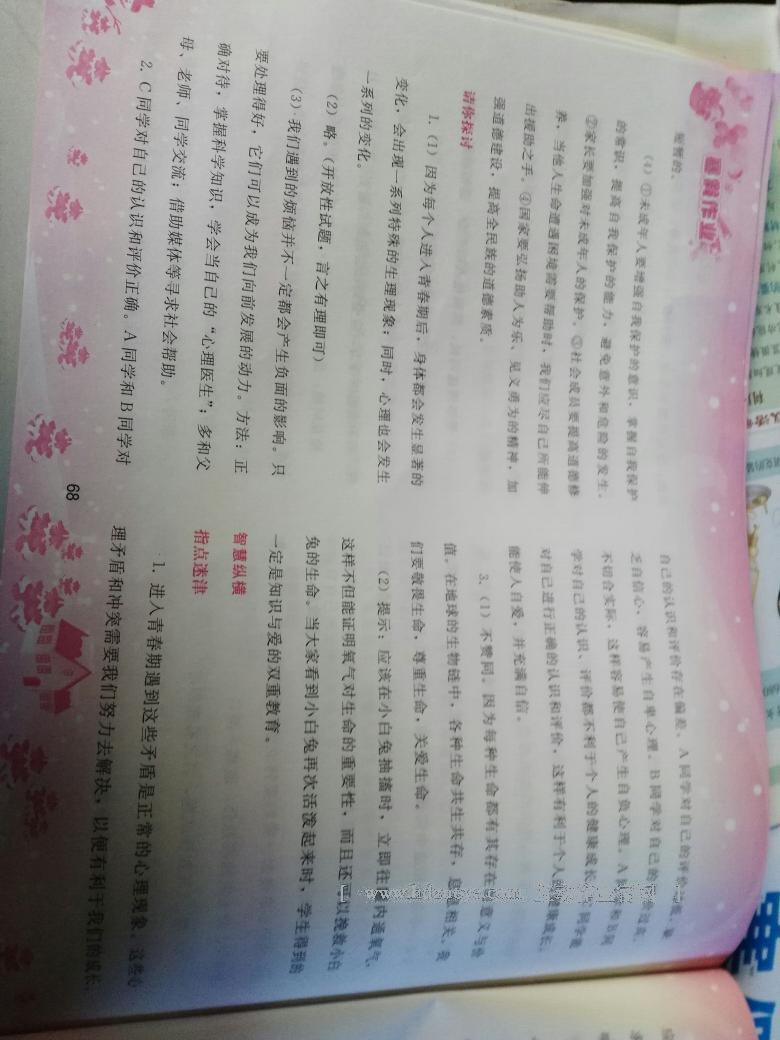 暑假作业
短暂的。
(4)①未成年人要增强自我保护的意识，掌握自我保护
的常识，提高自我保护的能力，避免意外和危险的发生。
②家长要加强对未成年人的保护。③社会成员要提高道德修
养，当他人生命遭遇困境需要帮助时，我们应尽自己所能伸
出援助之手。④国家要弘扬助人为乐、见义勇为的精神，加
强道德建设，提高全民族的道德素质。
请你探讨
1.(1)因为每个人进入青春期后，身体都会发生显著的
变化，会出现一系列特殊的生理现象；同时，心理也会发生
一系列的变化。
(2)略。(开放性试题，言之有理即可)
(3)我们遇到的烦恼并不一定都会产生负面的影响。只
要处理得好，它们可以成为我们向前发展的动力。方法：正
确对待，掌握科学知识，学会当自己的“心理医生”；多和父
母、老师、同学交流；借助媒体等寻求社会帮助。
2.C同学对自己的认识和评价正确。A同学和B同学对
68
自己的认识和评价存在偏差。A同学对自己的评价
乏自信心，容易产生自卑心理。B同学对自己的过高，
不切合实际，这样容易使自己产生自负心理。A和B同
学对自己的认识、评价都不利于个人的健康成长。同学能
对自己进行正确的认识和评价，这样有利于个人的健康成长，
能使人自爱，并充满自信。
3.(1)不赞同。因为每种生命都有其存在的意义与价
值。在地球的生物链中，各种生命共生共存，息息相关。我
们要敬畏生命，尊重生命，关爱生命。
(2)提示：应该在小白兔抽搐时，立即往内通氧气，
这样不但能证明氧气对生命的重要性，而且还可以挽救小白
兔的生命。当大家看到小白兔再次活泼起来时，学生得到的
一定是知识与爱的双重教育。
智慧纵横
指点迷津
1.进入青春期遇到这些矛盾是正常的心理现象。这些心
理矛盾和冲突需要我们努力去解决，以便有利于我们的成长。